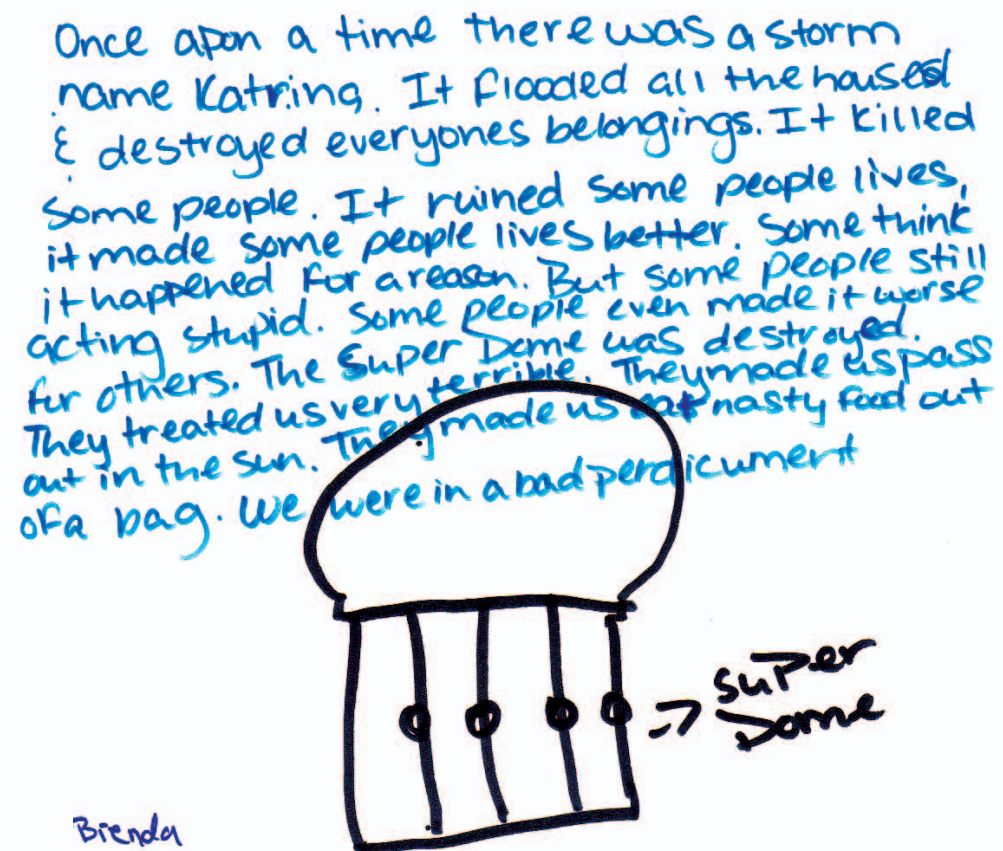 Once apon a time there was a storm
name Katrina. It flooded all the housed
& destroyed everyones belongings. It killed
some people. It ruined some people lives,
it made some people lives better. Some think
it happened for a reason. But some people still
acting stupid. Some people even made it worse
for others. The Super Dome was destroyed.
They treated us very terrible. They made us pass
out in the sun. They made us eat nasty food out
of a bag. We were in a bad perdicument
super
Dome
Brenda